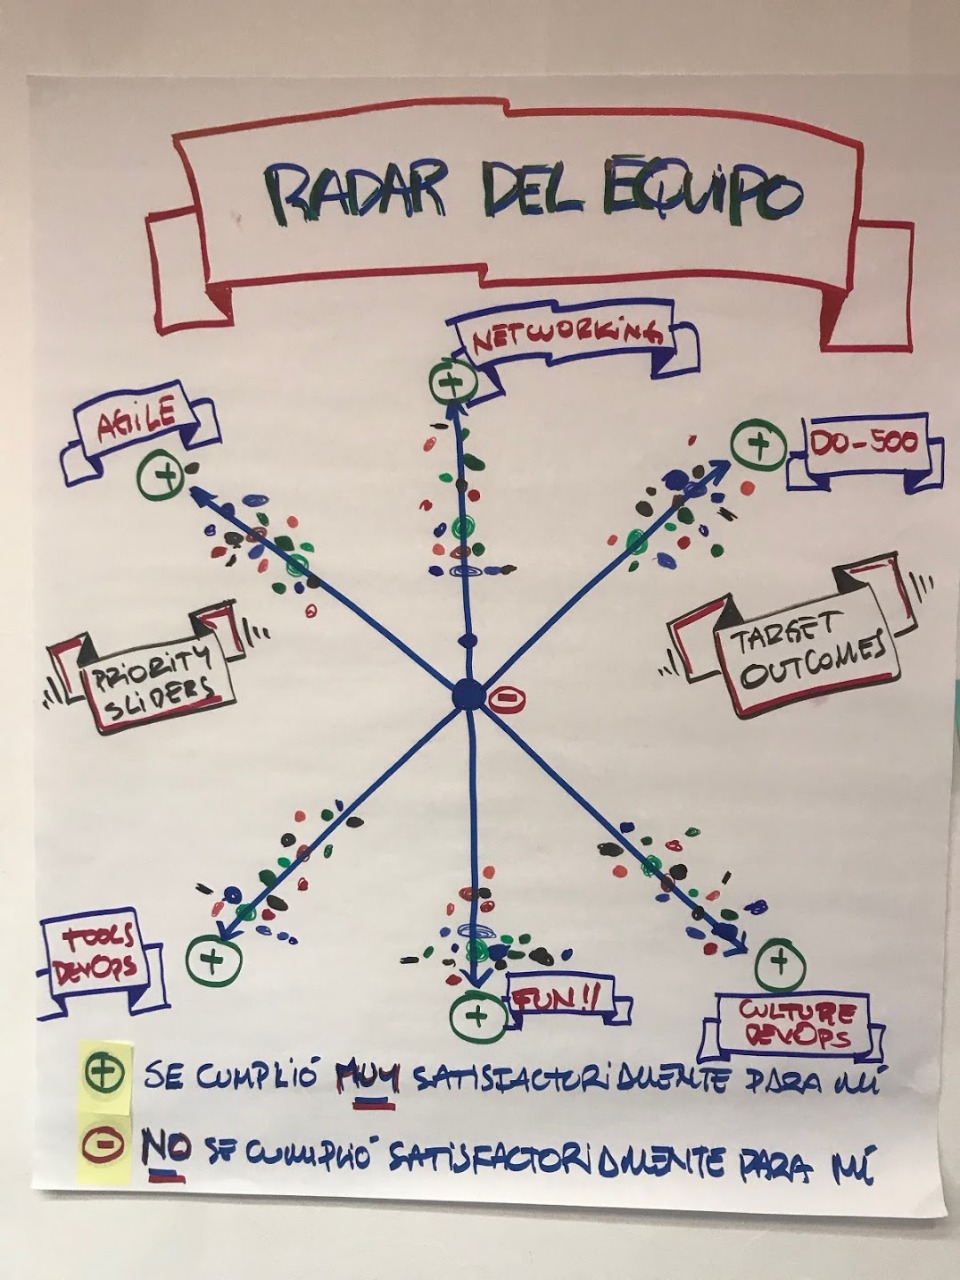 RADAR DEL EQUIPO
NETWORKING
AGILE
DO-500
PRIORITY
SLIDERS
TARGET
OUTCOMES
TOOLS
DEVOPS
FUN!!
CULTURE
DEVOPS
+ SE CUMPLIÓ MUY SATISFACTORIAMENTE PARA MÍ
- NO SE CUMPLIÓ SATISFACTORIAMENTE PARA MÍ